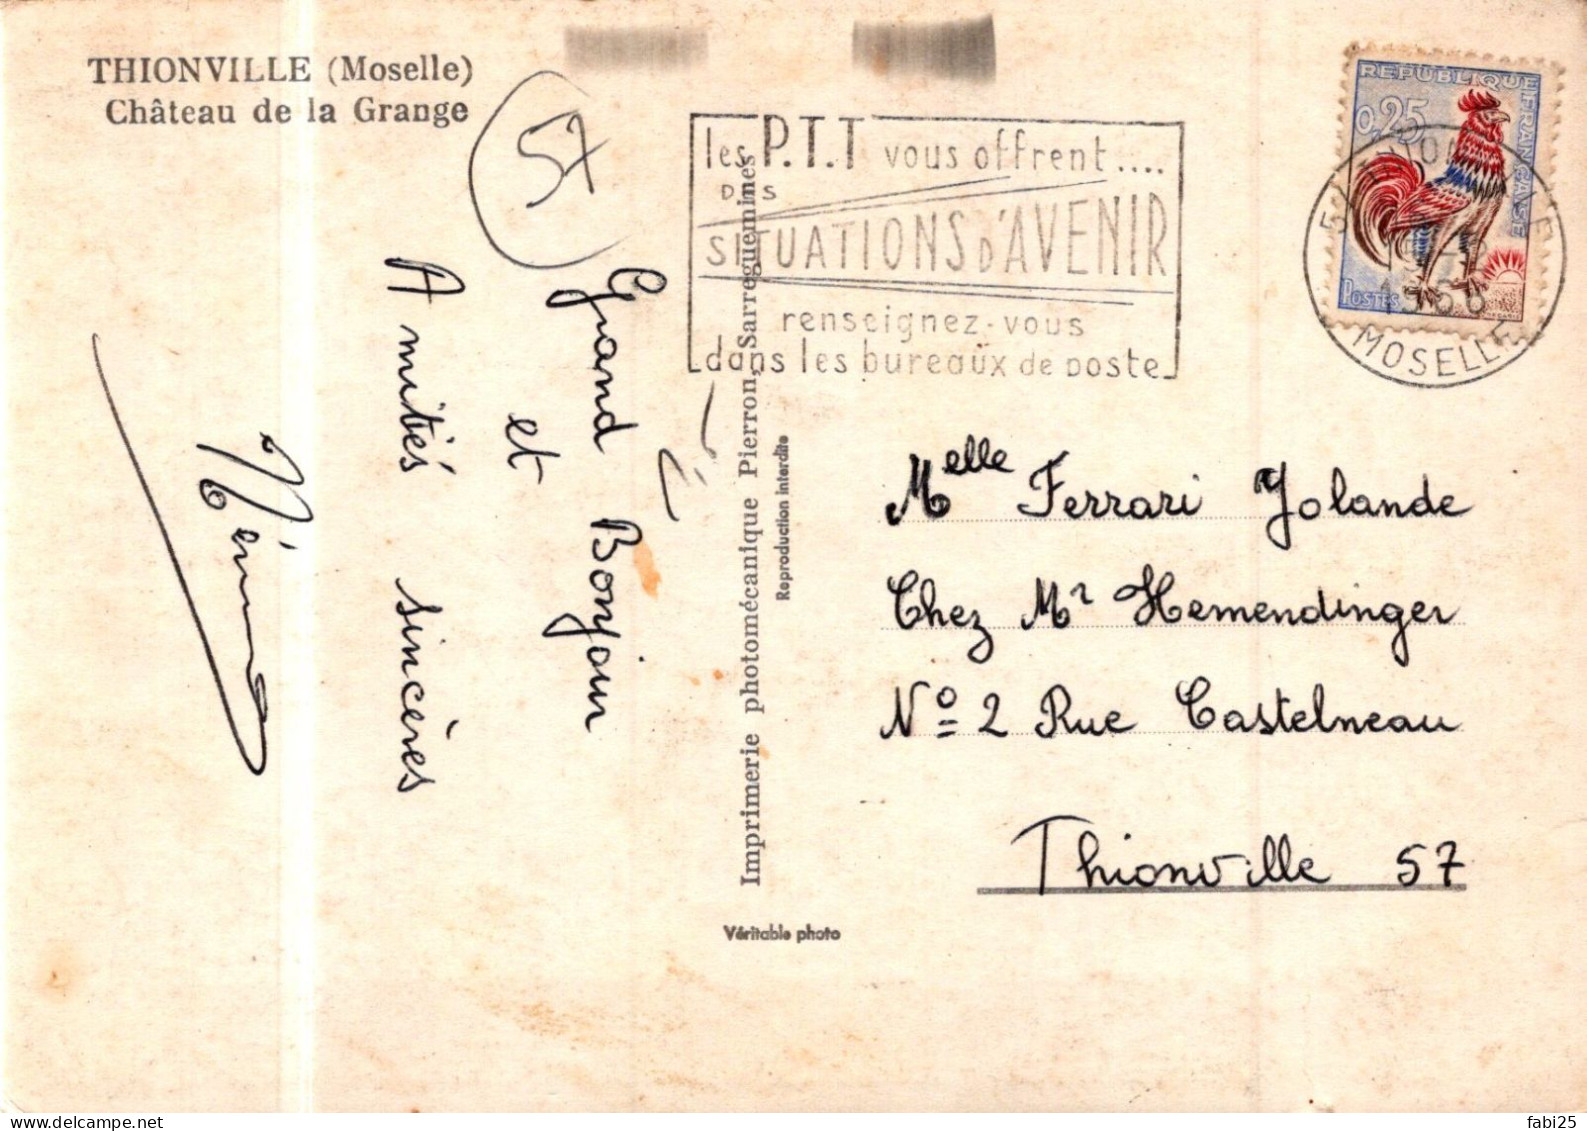 THIONVILLE (Moselle)
Château de la Grange
57
les P.T.T vous offrent....
DES
SITUATIONS D'AVENIR
renseignez-vous
dans les bureaux de poste
REPUBLIQUE FRANCAISE
0,25
POSTES
1966
MOSELLE
Grand Bonjour
et
Amitiés sincères
Imprimerie photomécanique Pierron, Sarreguemines
Reproduction interdite
Melle Ferrari Yolande
Chez Mr Hemendinger
No 2 Rue Castelneau
Thionville 57
Véritable photo
delcampe.net
fabi25